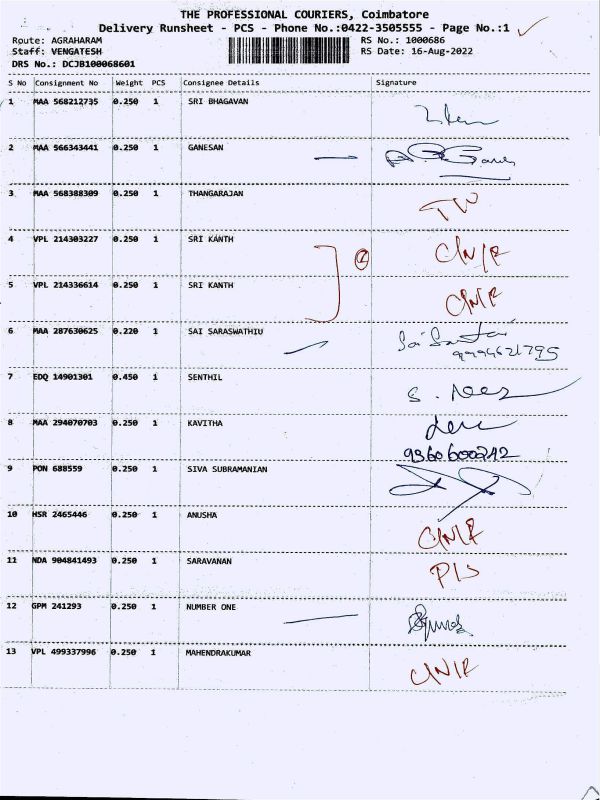 THE PROFESSIONAL COURIERS, Coimbatore
Delivery Runsheet - PCS - Phone No.:0422-3505555 - Page No.:1
Route: AGRAHARAM RS No.: 1000686
Staff: VENGATESH RS Date: 16-Aug-2022
DRS No.: DCJB100068601
S No Consignment No Weight PCS Consignee Details Signature
1 MAA 568212735 0.250 1 SRI BHAGAVAN
2 MAA 566343441 0.250 1 GANESAN
3 MAA 568388309 0.250 1 THANGARAJAN
4 VPL 214303227 0.250 1 SRI KANTH
5 VPL 214336614 0.250 1 SRI KANTH
6 MAA 287630625 0.220 1 SAI SARASWATHIU
9994621795
7 EDQ 14901301 0.450 1 SENTHIL
8 MAA 294070703 0.250 1 KAVITHA
9360600242
9 PON 688559 0.250 1 SIVA SUBRAMANIAN
10 HSR 2465446 0.250 1 ANUSHA
11 NDA 904841493 0.250 1 SARAVANAN
12 GPM 241293 0.250 1 NUMBER ONE
13 VPL 499337996 0.250 1 MAHENDRAKUMAR